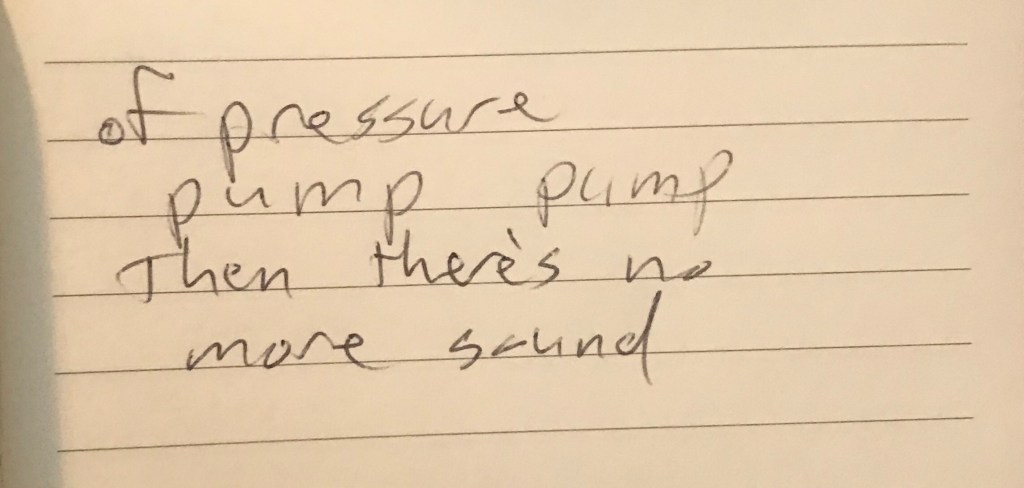 of pressure
pump pump
Then there's no
more sound